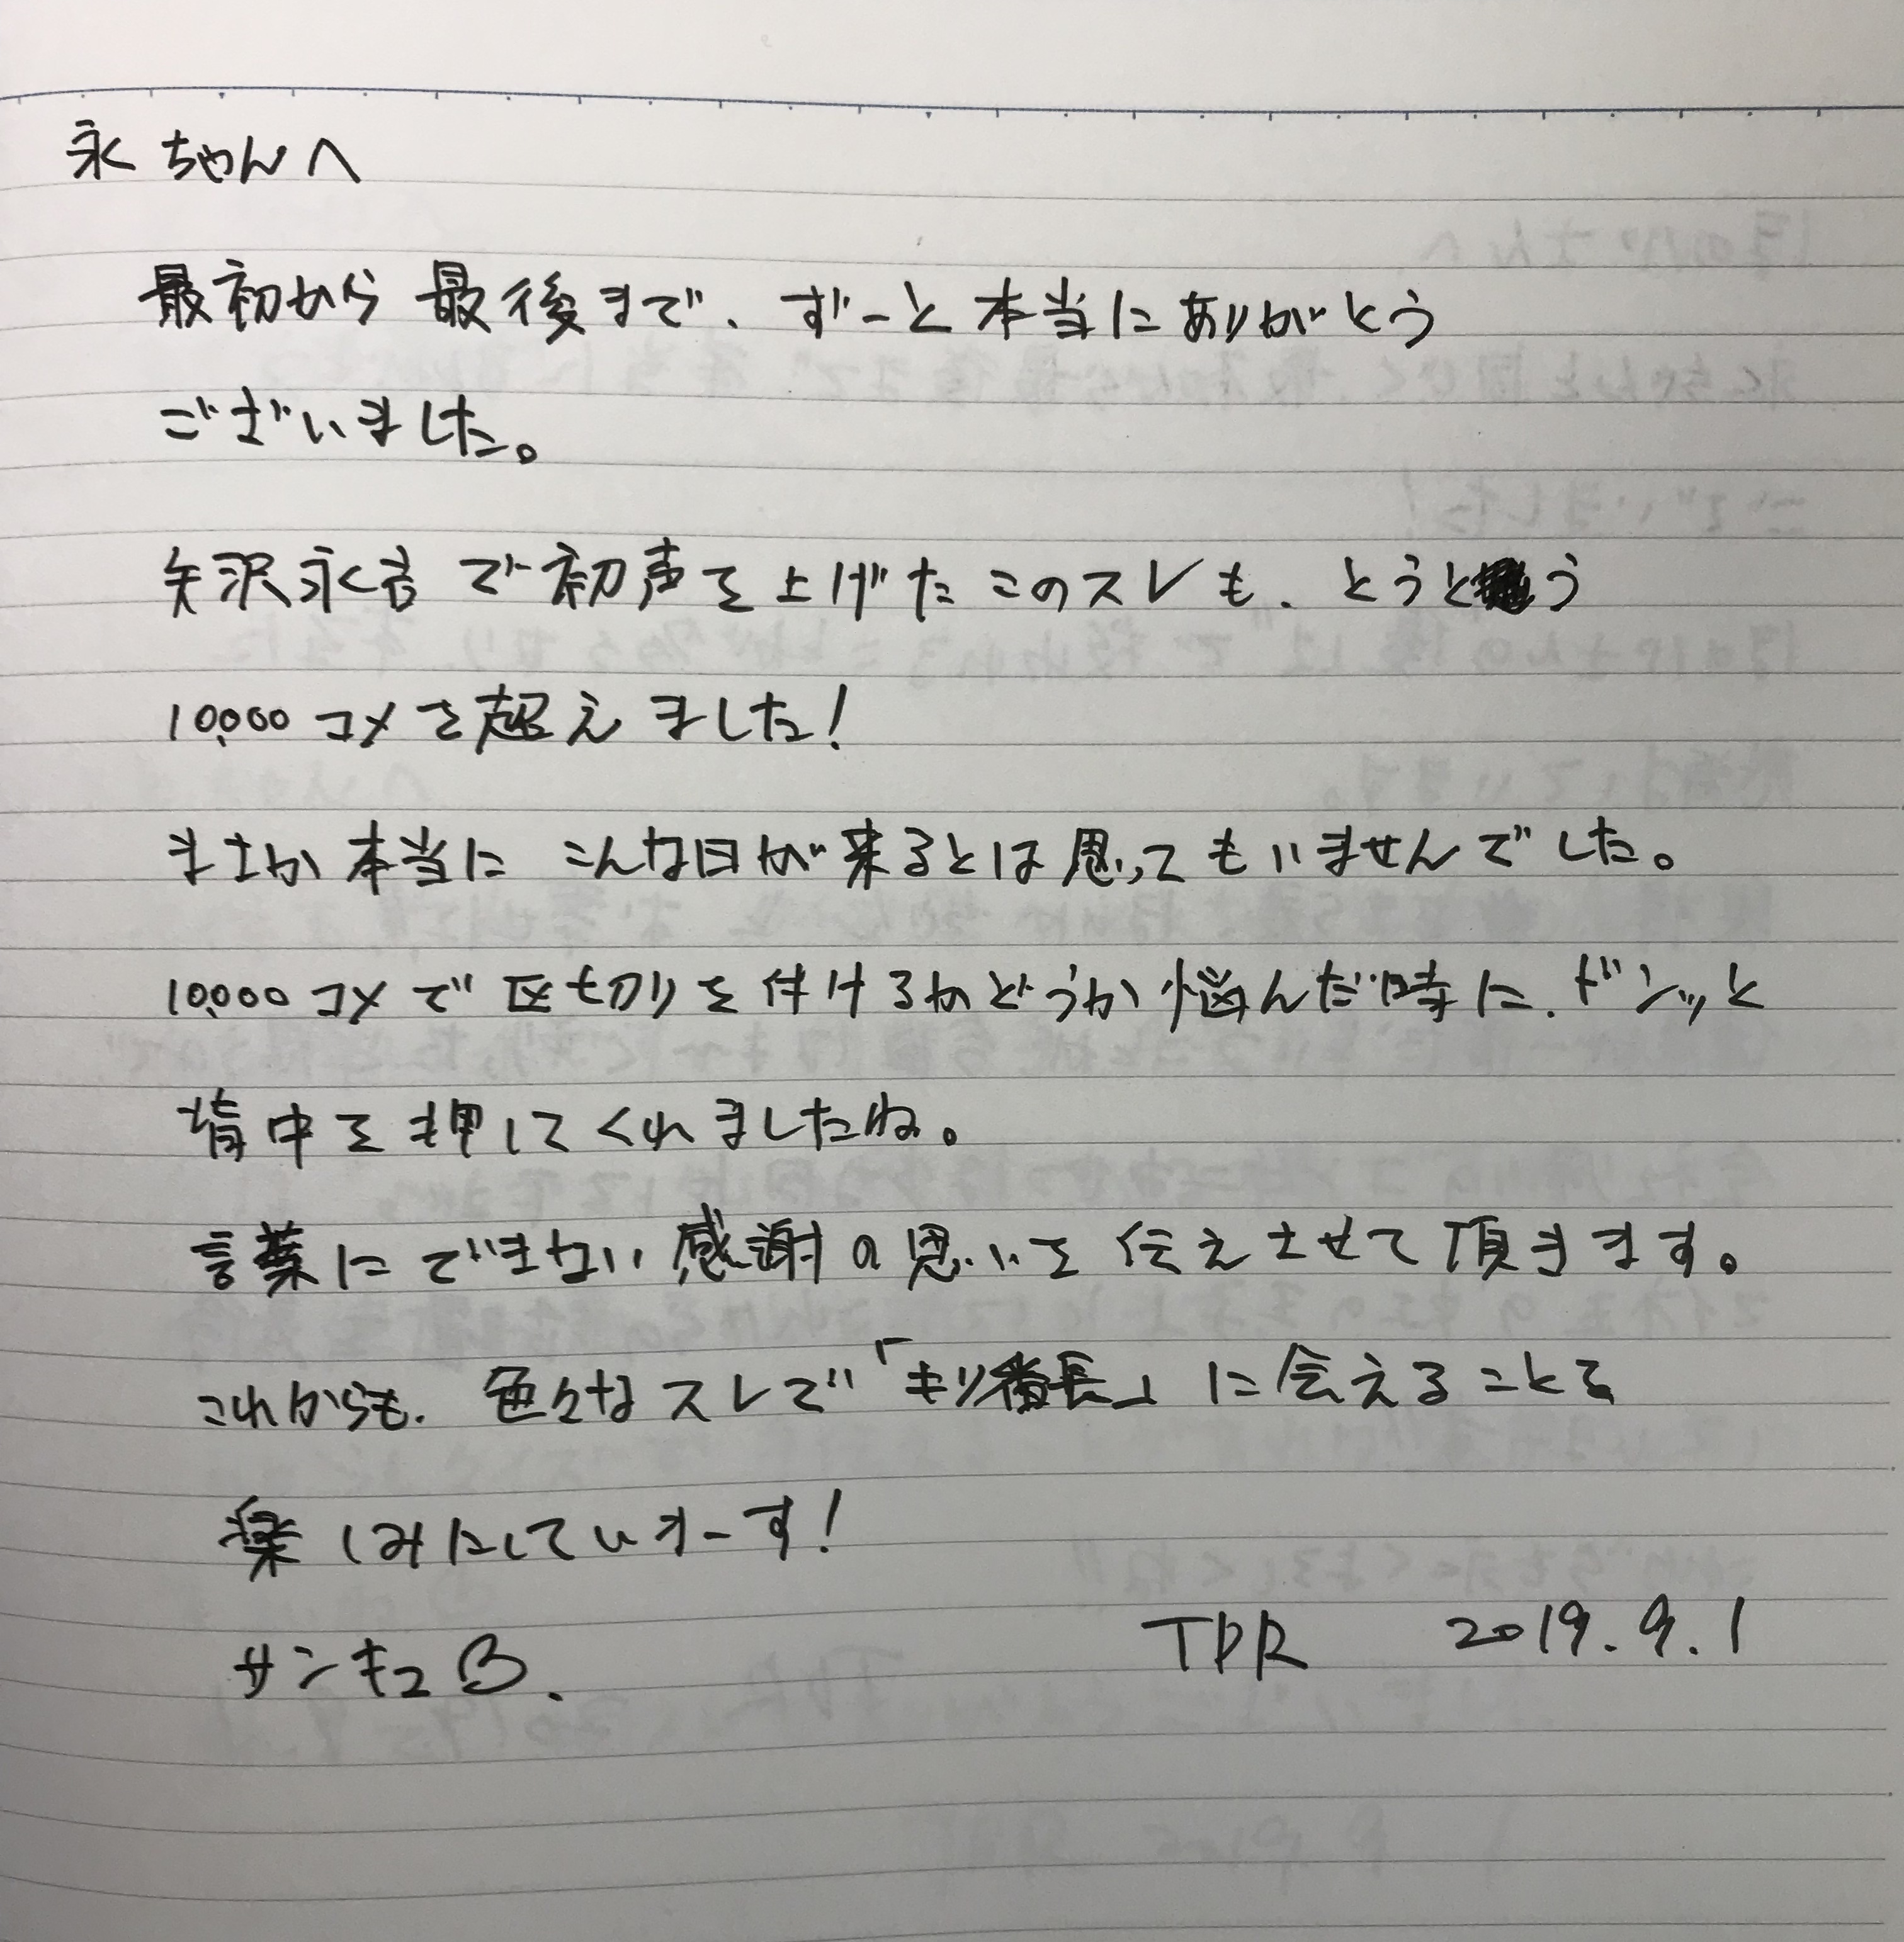 永ちゃんへ
最初から最後まで、ずーと本当にありがとう
ございました。
矢沢永吉で初声を上げたこのスレも、とうとう
10,000コメを超えました!
まさか本当にこんな日が来るとは思ってもいませんでした。
10,000コメで区切りを付けるかどうか悩んだ時に、ドンッと
背中を押してくれましたね。
言葉にできない感謝の思いを伝えさせて頂きます。
これからも、色々なスレで「キリ番長」に会えることを
楽しみにしていまーす!
サンキュ
TDR 2019.9.1